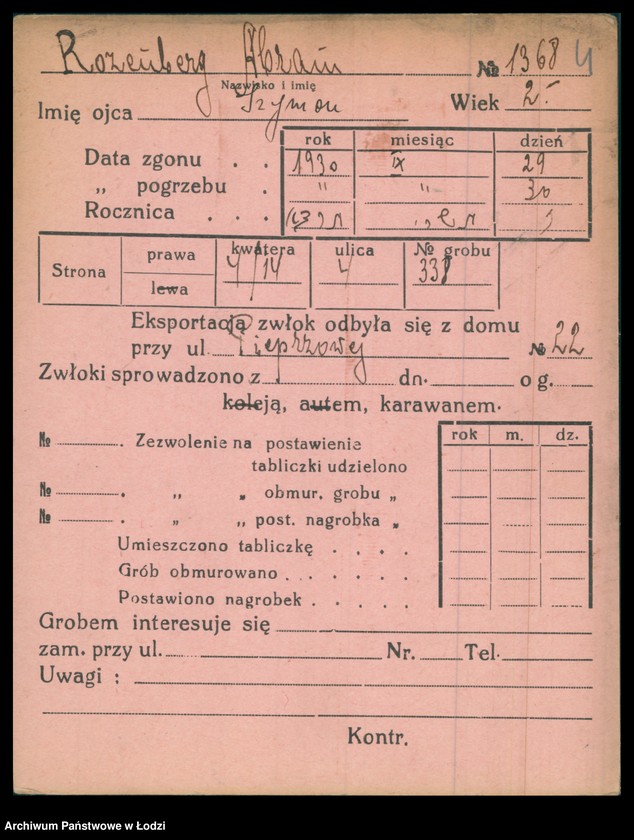 Rozenberg Abram № 1368 4
Nazwisko i imię
Imię ojca Szymon Wiek 2.-
rok miesiąc dzień
Data zgonu . . 1930 IX 29
„ pogrzebu . " " 30
Rocznica . . .
Strona prawa lewa kwatera 4/14 ulica 4 № grobu 338
Eksportacja zwłok odbyła się z domu
przy ul. Pieprzowej № 22
Zwłoki sprowadzono z dn. o g.
koleją, autem, karawanem.
rok m. dz.
№ . Zezwolenie na postawienie
tabliczki udzielono
№ . „ „ obmur. grobu „
№ . „ „ post. nagrobka „
Umieszczono tabliczkę . . . .
Grób obmurowano . . . . .
Postawiono nagrobek . . . . .
Grobem interesuje się
zam. przy ul. Nr. Tel.
Uwagi :
Kontr.
Archiwum Państwowe w Łodzi